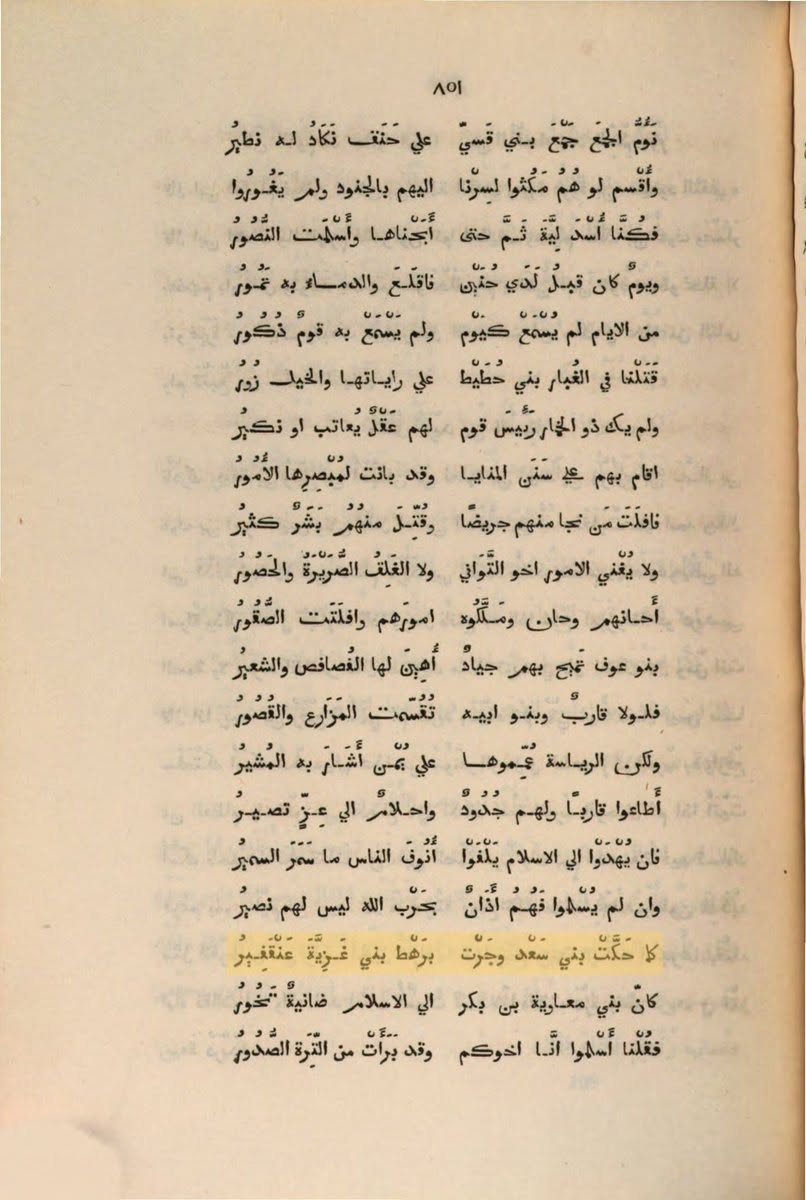 ٨٥١
نَوُمُّ الجمعَ جَمْعَ بني قَسِيٍّ علي حَنَقٍ نَكَادُ له نطيرُ
وأُقسم لو هُمُ مَكثُوا لسِرنا اليهم بالجنود ولم يَغُوروا
فكُنَّا أُسْد لِيَّةَ ثَمَّ حتى أَبَحْناها وأُسْلِمَت النُّصُورُ
ويومٌ كان قبلُ لَدَي حُنَيْنٍ فاقلَعَ والدماء به تَمُورُ
من الايام لم يُسْمَعْ كيَوْمٍ ولم يَسْمَعْ به قومٌ ذُكُورُ
قَتَلْنا في الغُبار بني حُطَيْطٍ علي راياتها والخيلُ زُورُ
ولم يك ذو الخمار رئيسَ قوم لهم عَقْلٌ يعاتب او نكيرُ
اقام بهم علي سَنَنِ المنايا وقد بانت لمُبْصِرِها الأُمُورُ
فافلَتَ مَن نجا منهم جريضًا وقُتِّلَ منهُمُ بَشَرٌ كثيرُ
ولا يُغْني الامور اخو التَّوَاني ولا الغَلِقُ الصُّرَيْرَةُ والحَصُورُ
أَحانهم وحان ومَلَّكُوه امورَهم وافلَتَت الصُّقُورُ
بنو عوف تَميح بهم جيادٌ أُهِينَ لها الفَصافص والشعيرُ
فلولا قاربٌ وبنو ابيه تُقُسِّمت المَزَارع والقُصُورُ
ولكن الرياسة عُمِّموها علي يُمْنٍ أَشَارَ به المُشيرُ
أَطاعوا قاربًا ولهم جُدُودٌ واحلامٌ الي عِزٍّ تصيرُ
فان يُهْدَوْا الي الاسلام يُلْفَوْا أُنُوفَ الناس ما سَمَرَ السميرُ
وان لم يُسْلموا فَهُمُ أَذَانٌ بحَرْبِ الله ليس لهم نصيرُ
كما حَكَّتْ بني سَعْد وجَرَّتْ برَهْط بني غَزِيَّةَ عَنْقَفِيرُ
كانّ بني معاوية بن بكر الي الاسلام ضانيةٌ تَخُورُ
فقُلْنا أَسْلموا انَّا اخوكم وقد بَرَأَتْ من التِّرَة الصُّدُورُ